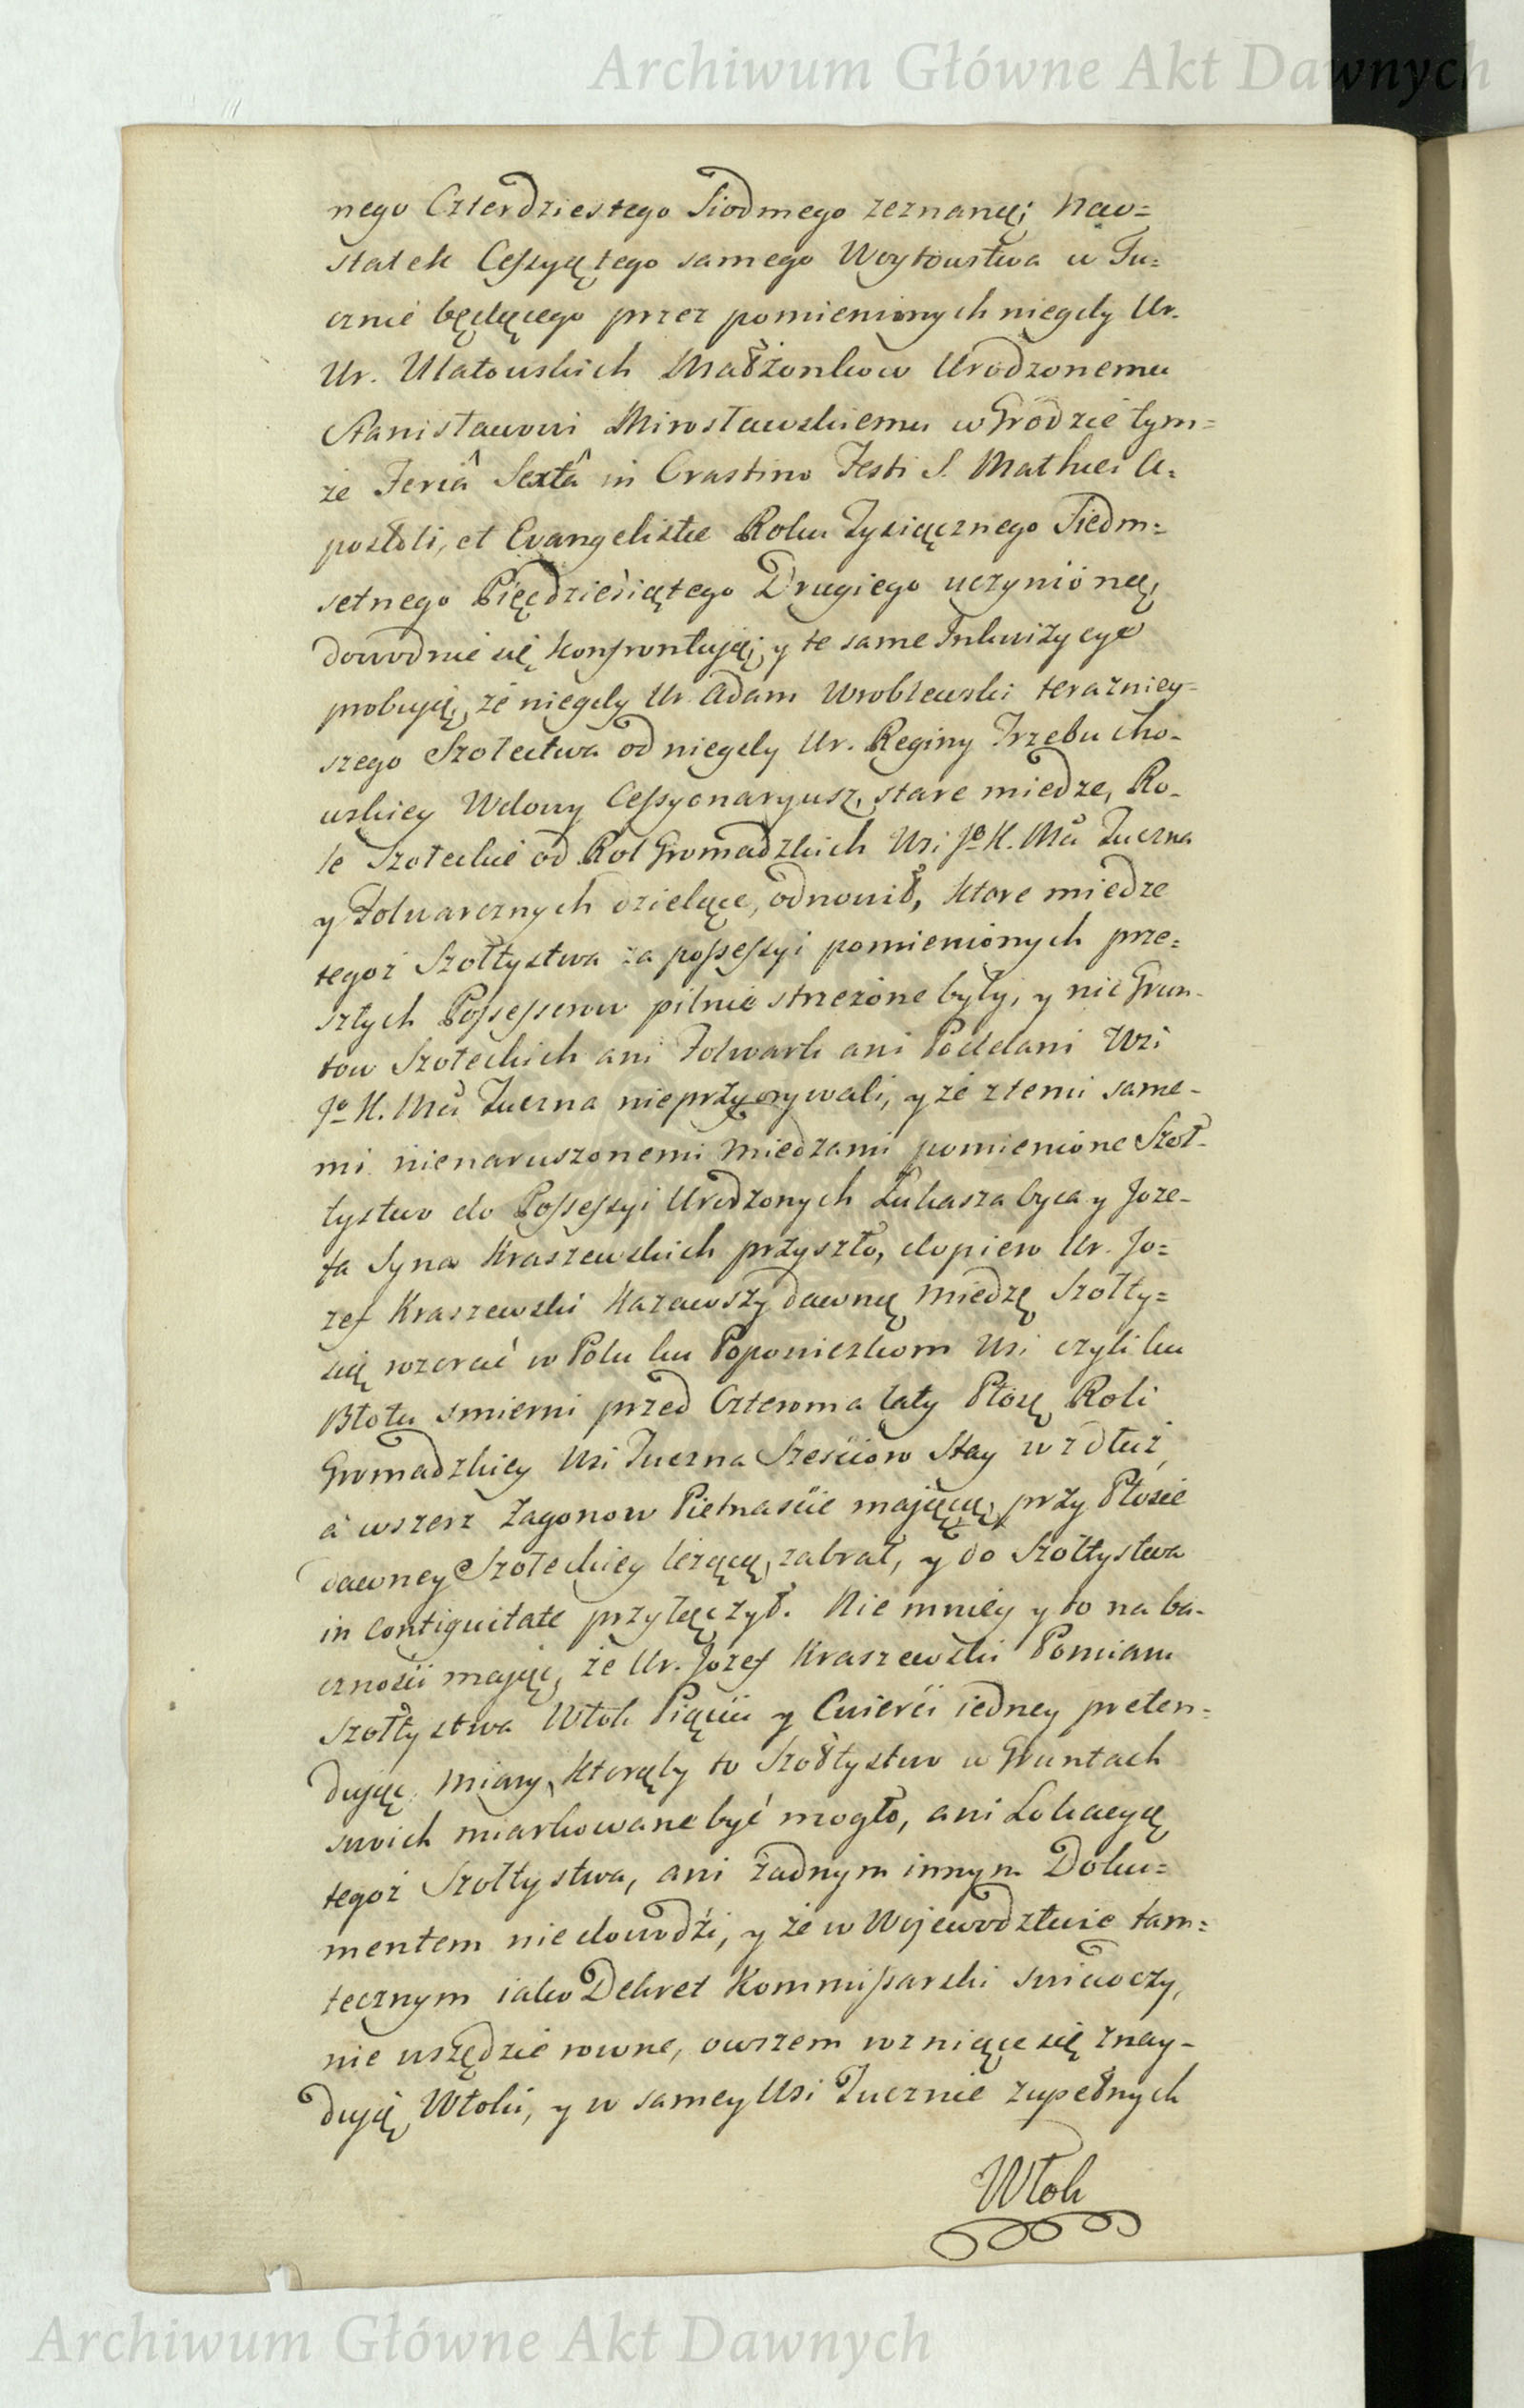 Archiwum Główne Akt Dawnych
nego Czterdziestego Siodmego zeznaną; Nao=
statek Ceſsyą tego samego Woytowstwa w Tu=
cznie będącego przez pomienionych niegdy Ur.
Ur. Ulatowskich Małżonkow Urodzonemu
Stanisławowi Mirosławskiemu w Grodzie tym=
że Feriâ Sextâ in Crastino Festi S. Mathaei A=
postoli, et Evangelistae Roku Tysiącznego Siedm=
setnego Pięćdziesiątego Drugiego uczynioną,
dowodnie się konfrontują; y te same Inkwizycye
probują, że niegdy Ur. Adam Wroblewski teraźniey=
szego Szołectwa od niegdy Ur. Reginy Trzebucho-
wskiey Wdowy Ceſsyonaryusz, stare miedze, Ro-
le Szołeckie od Rol Gromadzkich Wsi Jo K. Mci Tuczna
y Folwarcznych dzielące, odnowił, ktore miedze
tegoż Szołtystwa za poſseſsyi pomienionych prze=
szłych Poſseſsorow pilnie strzeżone były, y nic Grun-
tow Szołeckich ani Folwark ani Poddani Wsi
Jo K. Mci Tuczna nieprzyorywali, y że z temi same-
mi nienaruszonemi miedzami pomienione Szoł-
tystwo do Poſseſsyi Urodzonych Łukasza Oyca y Joze-
fa Syna Kraszewskich przyszło, dopiero Ur. Jo=
zef Kraszewski kazawszy dawną miedzę Szołty=
ską rozorać w Polu ku Poponieszkom Wsi czyli ku
Błotu smierni przed Czteroma laty Płosę Roli
Gromadzkiey Wsi Tuczna Sześcioro Stay wzdłuż,
a wszerz Zagonow Pietnaście mającą, przy Płosie
dawney Szołeckiey leżącą, zabrał, y do Szołtystwa
in contiguitate przyłączył. Nie mniey y to na ba-
czności mając, że Ur. Jozef Kraszewski Pomiaru
Szołtystwa Włok Piąciu y Cwierci iedney preten=
dując, miary, ktorąby to Szołtystwo w Gruntach
swoich miarkowane być mogło, ani Lokacyą
tegoż Szołtystwa, ani żadnym innym Doku=
mentem niedowodzi, y że w Wojewodztwie tam=
tecznym iako Dekret Kommiſsarski swiadczy,
nie wszędzie rowne, owszem rozniące się znay-
dują Włoki, y w samey Wsi Tucznie zupełnych
Włok
Archiwum Główne Akt Dawnych